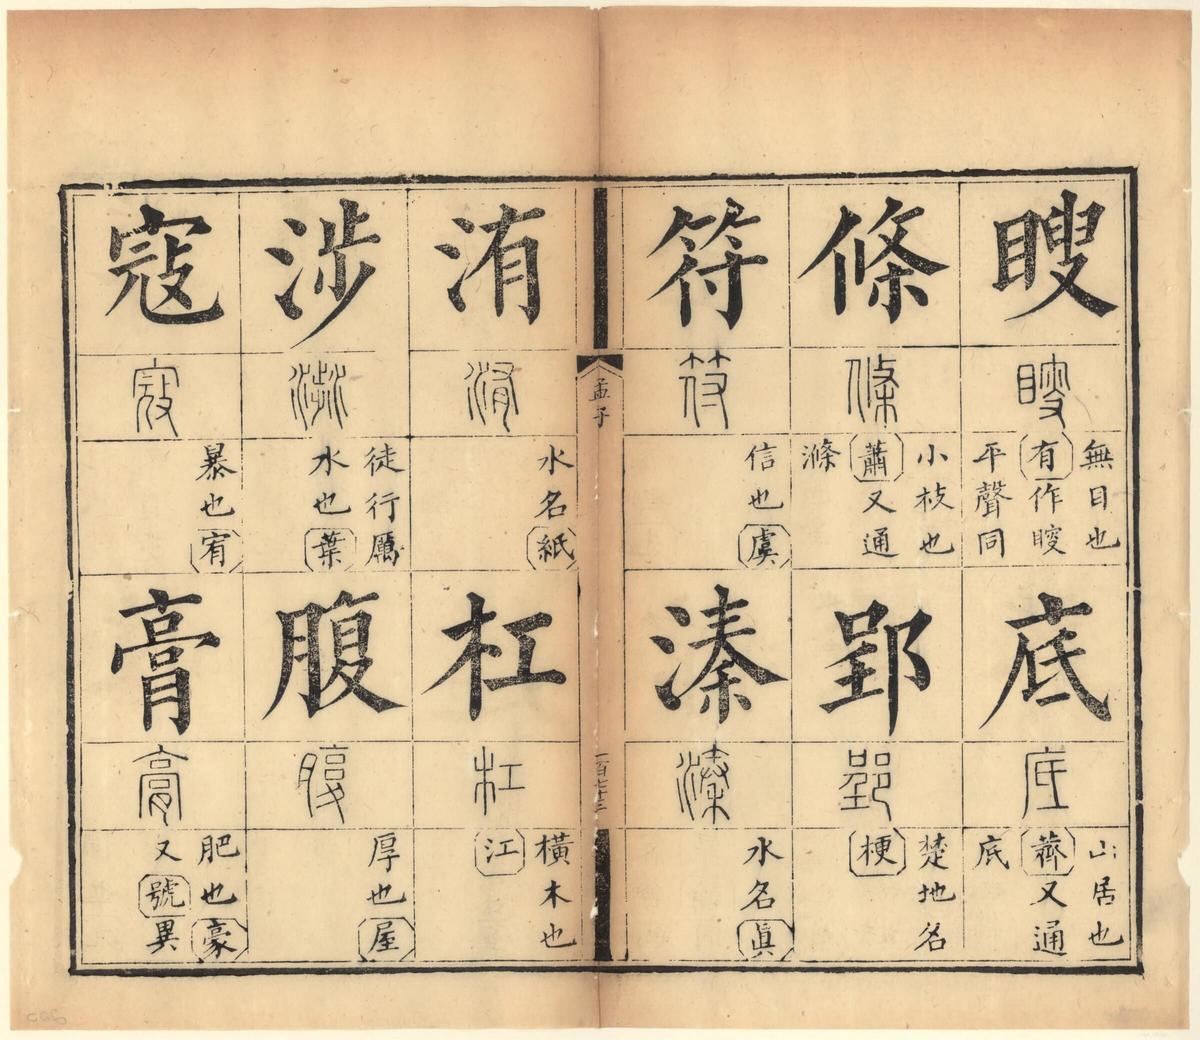 瞍
瞍
無目也
有作
平聲同
底
底
山居也
薺又通
底
條
條
小枝也
蕭又通
滌
郢
郢
楚地名
梗
符
符
信也虞
溱
溱
水名眞
孟子
一百七十二
洧
洧
水名紙
杠
杠
橫木也
江
涉
涉
徒行厲
水也葉
腹
腹
厚也屋
寇
寇
暴也宥
膏
膏
肥也豪
又號異